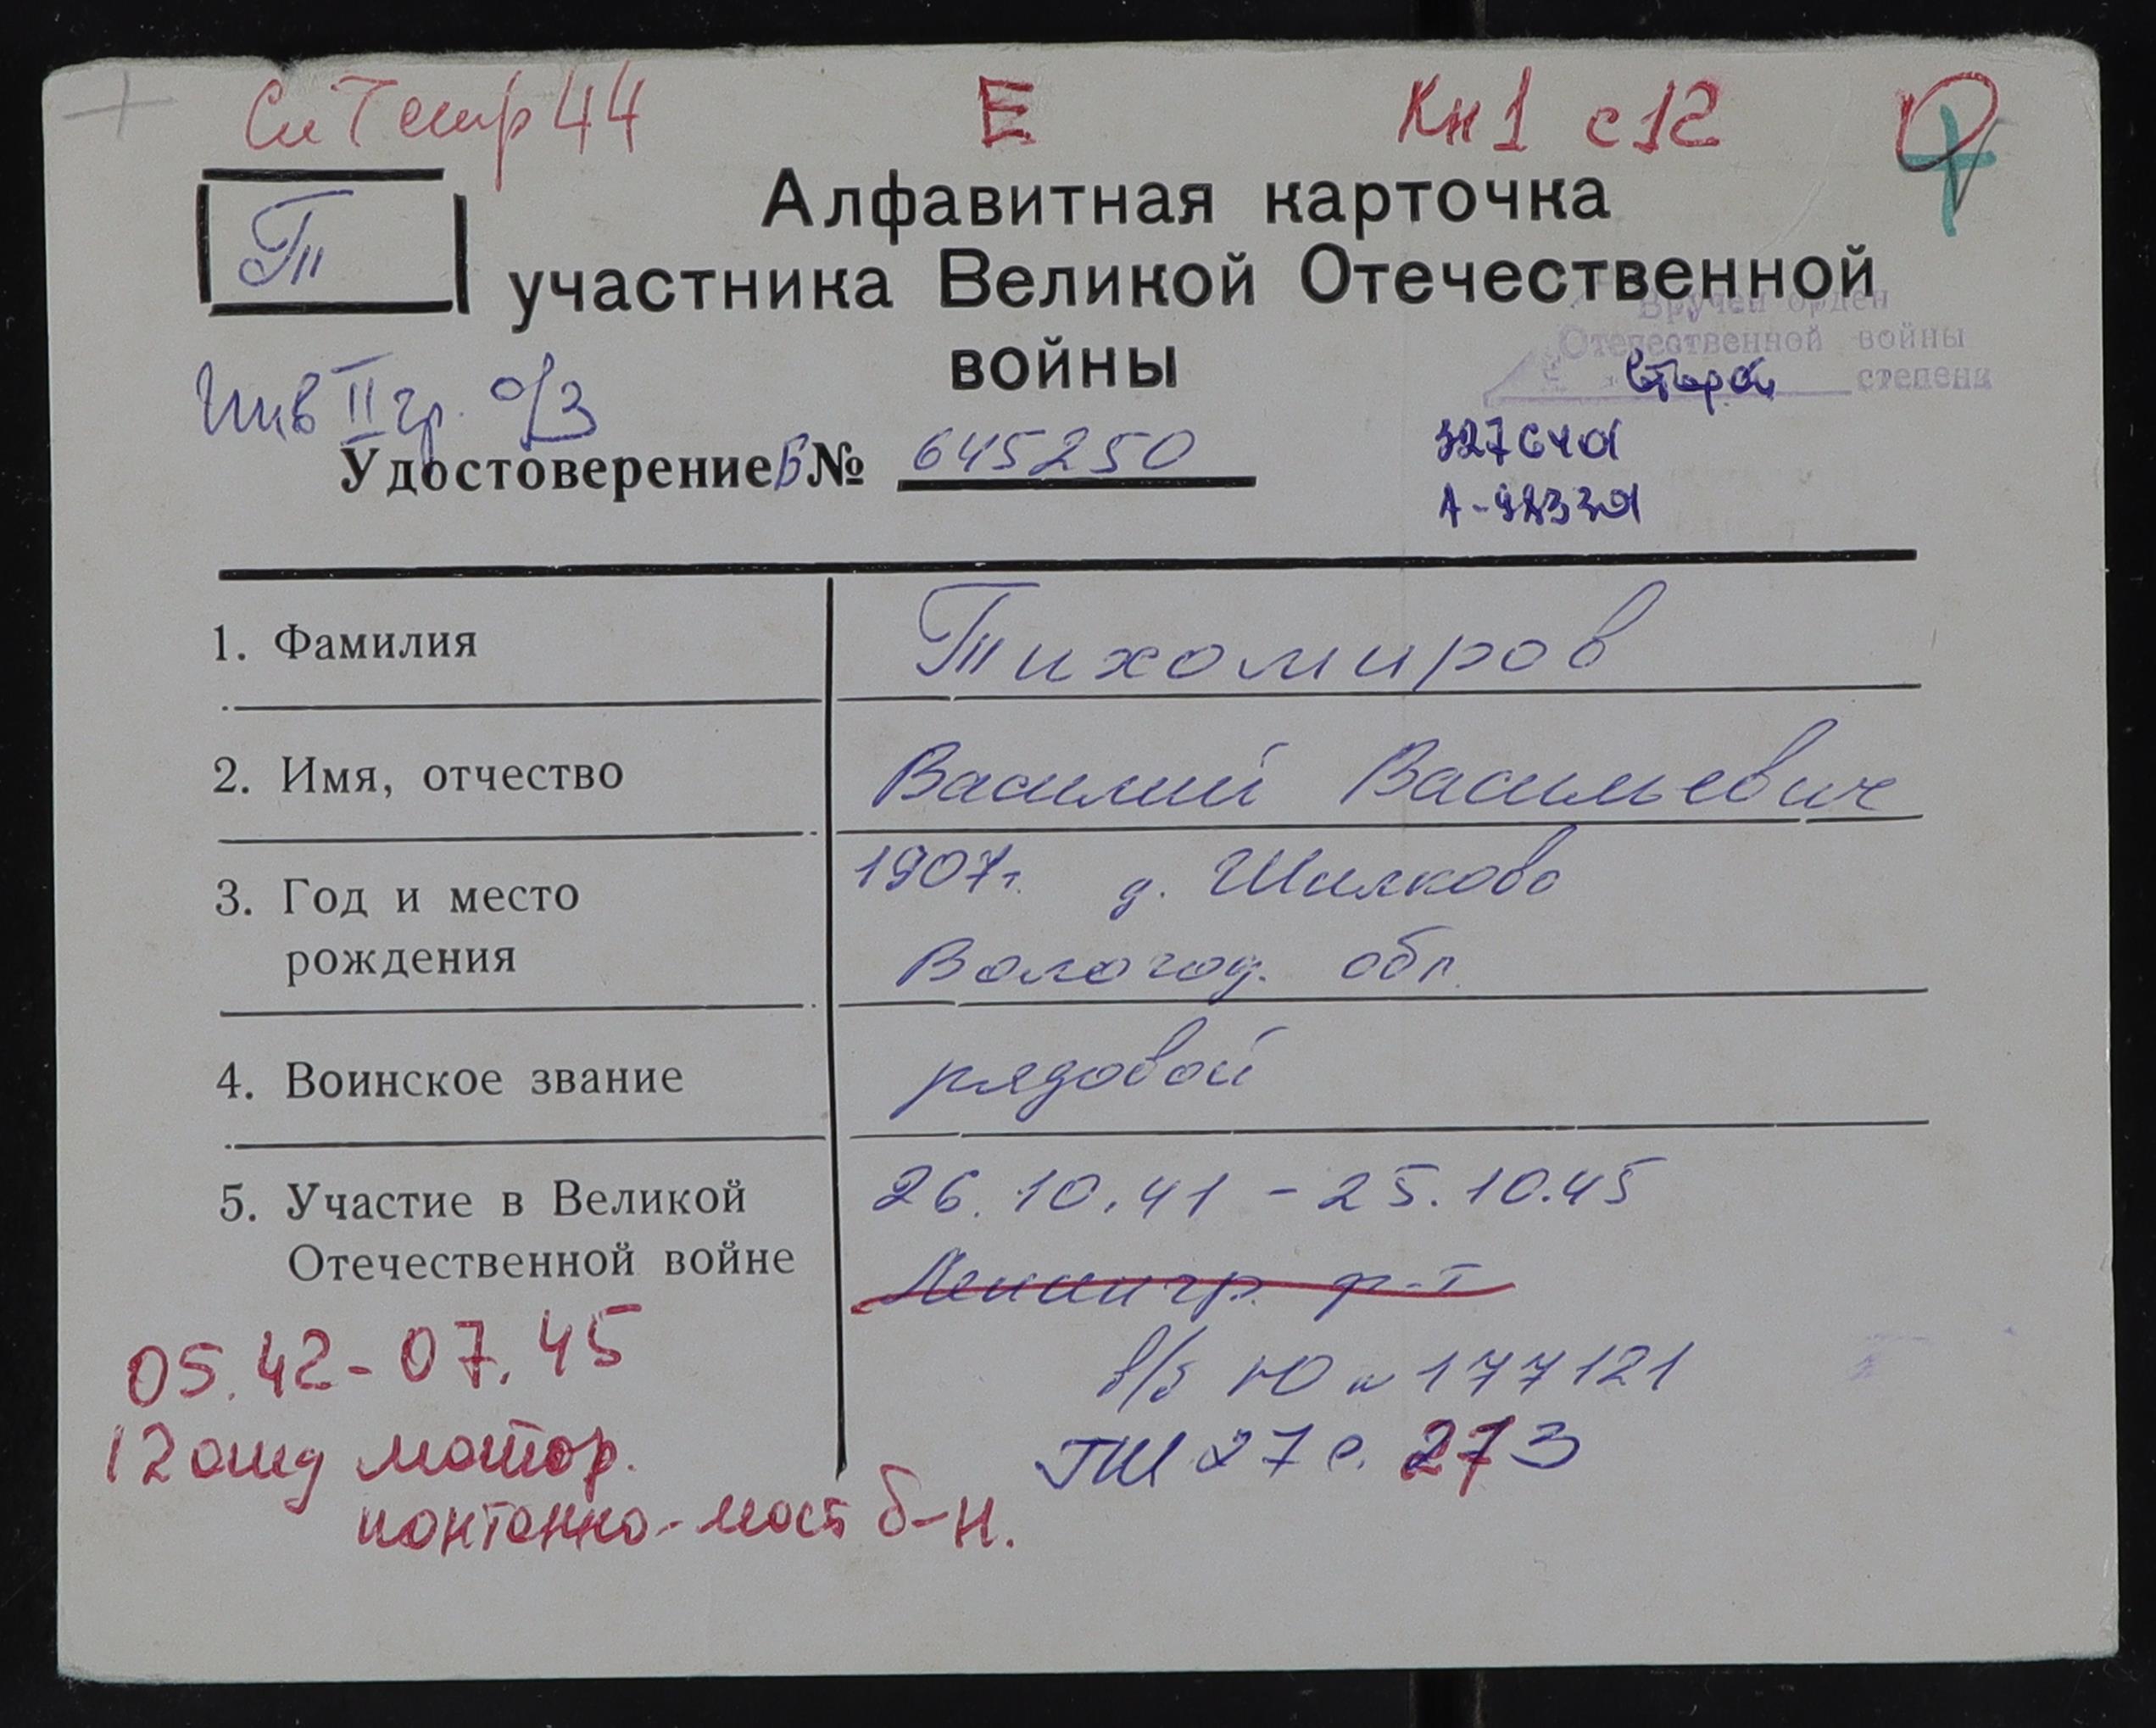 44 Е Кн 1 с 12
Т
Алфавитная карточка
участника Великой Отечественной
войны
Вручен орден
Отечественной войны
второй степени
Инв II гр. о/з
Удостоверение Б № 645250
1. Фамилия Тихомиров
2. Имя, отчество Василий Васильевич
3. Год и место 1907 г. д. Шилково
рождения Вологод. обл.
4. Воинское звание рядовой
5. Участие в Великой 26.10.41 - 25.10.45
Отечественной войне Ленингр. ф-т
05.42-07.45
в/б Ю № 177121
12 мотор.
27 с. 273
понтонно-мост б-н.